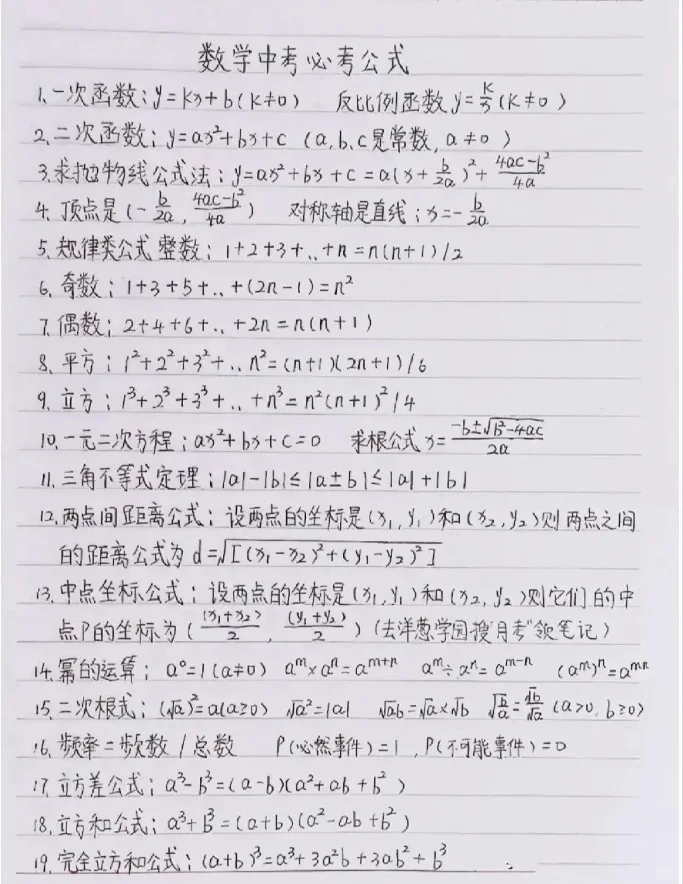 数学中考必考公式
1.一次函数:y=kx+b(k≠0) 反比例函数y=k/x(k≠0)
2.二次函数:y=ax²+bx+c (a,b,c是常数,a≠0)
3.求抛物线公式法:y=ax²+bx+c=a(x+b/2a)²+(4ac-b²)/4a
4.顶点是(-b/2a,(4ac-b²)/4a) 对称轴是直线:x=-b/2a
5.规律类公式 整数:1+2+3+..+n=n(n+1)/2
6.奇数:1+3+5+..+(2n-1)=n²
7.偶数:2+4+6+..+2n=n(n+1)
8.平方:1²+2²+3²+..n²=(n+1)(2n+1)/6
9.立方:1³+2³+3³+..+n³=n²(n+1)²/4
10.一元二次方程:ax²+bx+c=0 求根公式x=(-b±√(b²-4ac))/2a
11.三角不等式定理:|a|-|b|≤|a±b|≤|a|+|b|
12.两点间距离公式:设两点的坐标是(x₁,y₁)和(x₂,y₂)则两点之间
的距离公式为d=√[(x₁-x₂)²+(y₁-y₂)²]
13.中点坐标公式:设两点的坐标是(x₁,y₁)和(x₂,y₂)则它们的中
点P的坐标为((x₁+x₂)/2,(y₁+y₂)/2)(去洋葱学园搜"月考"领笔记)
14.幂的运算:a⁰=1(a≠0) aᵐ×aⁿ=aᵐ⁺ⁿ aᵐ÷aⁿ=aᵐ⁻ⁿ (aᵐ)ⁿ=aᵐⁿ
15.二次根式:(√a)²=a(a≥0) √a²=|a| √ab=√a×√b √(b/a)=√b/√a(a>0,b≥0)
16.频率=频数/总数 P(必然事件)=1,P(不可能事件)=0
17.立方差公式:a³-b³=(a-b)(a²+ab+b²)
18.立方和公式:a³+b³=(a+b)(a²-ab+b²)
19.完全立方和公式:(a+b)³=a³+3a²b+3ab²+b³